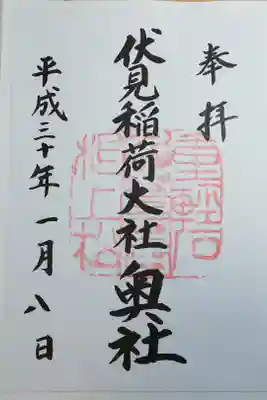 奉拝
伏見稲荷大社奥社
平成三十年一月八日